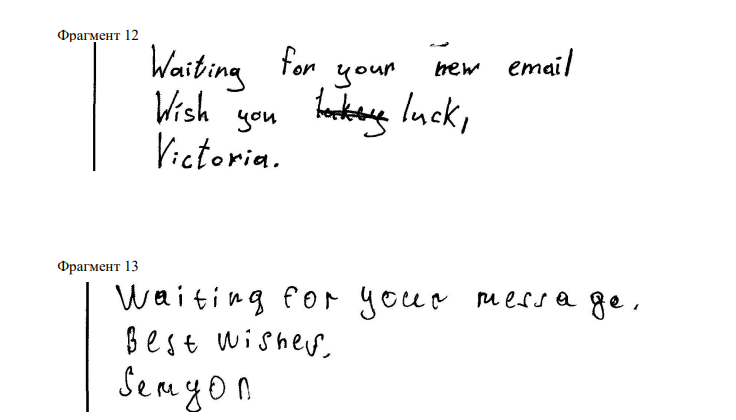 Фрагмент 12
Waiting for your new email
Wish you luck,
Victoria.
Фрагмент 13
Waiting for your message.
Best wishes,
Semyon